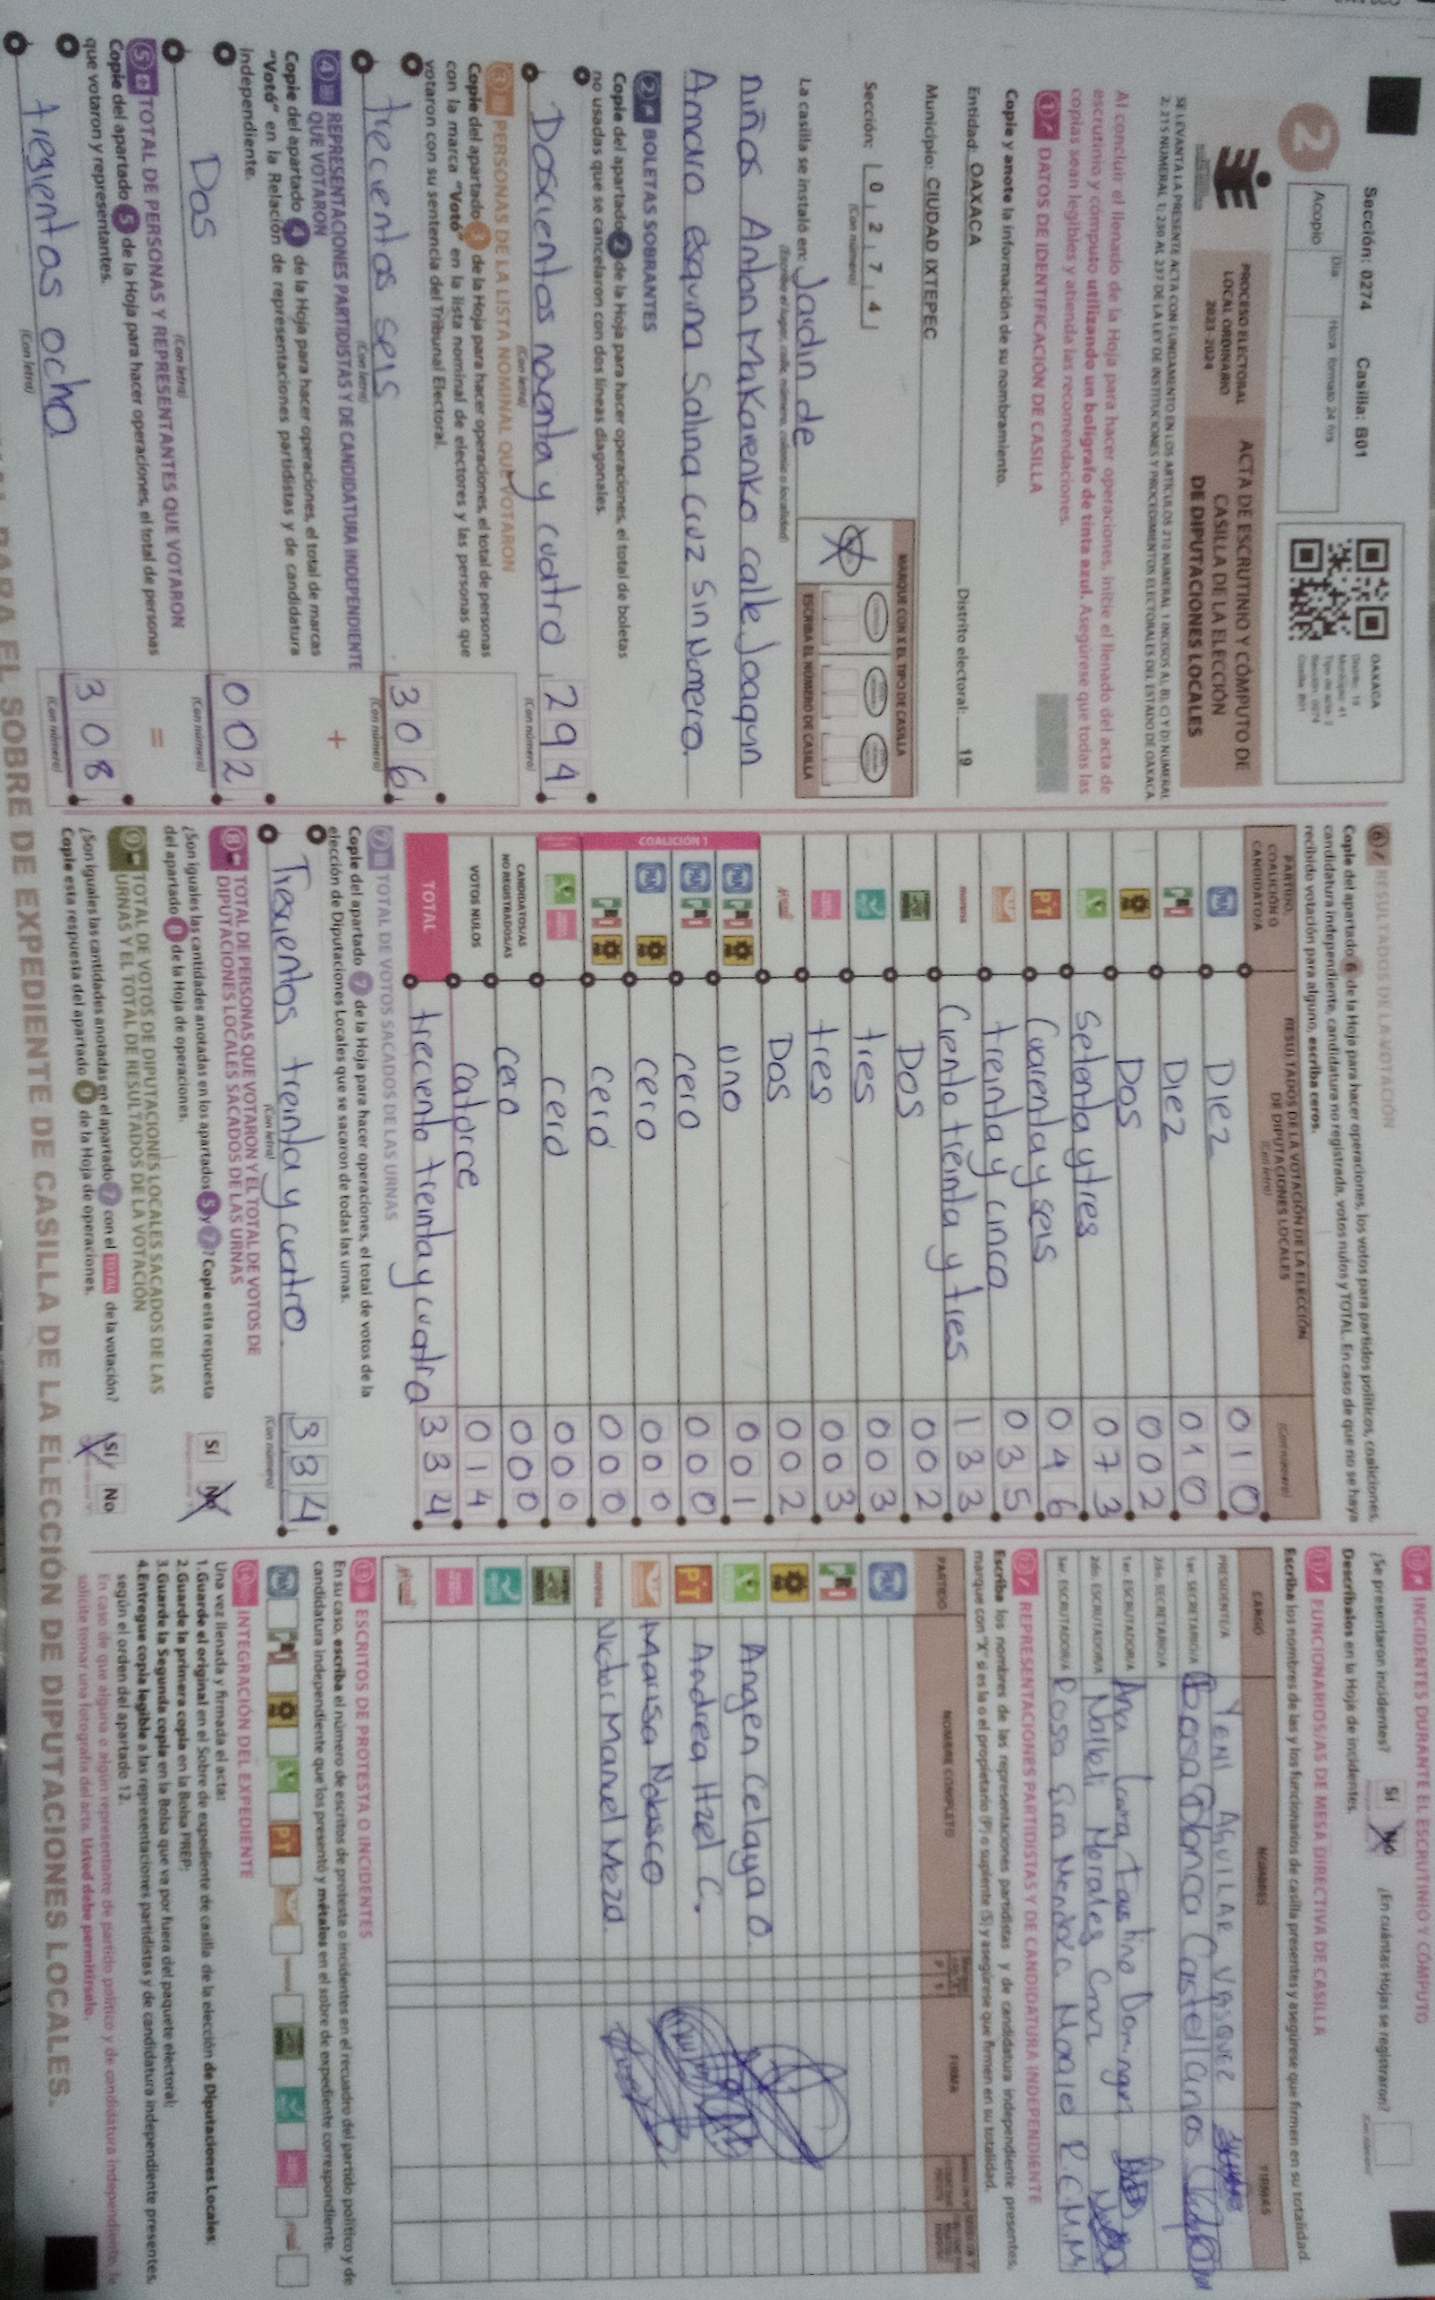 Sección: 0274 Casilla: B01
2
Acopio
Día
Hora formato 24 hrs
OAXACA
PROCESO ELECTORAL
LOCAL ORDINARIO
2023-2024
ACTA DE ESCRUTINIO Y CÓMPUTO DE
CASILLA DE LA ELECCIÓN
DE DIPUTACIONES LOCALES
Al concluir el llenado de la Hoja para hacer operaciones, inicie el llenado del acta de
escrutinio y cómputo utilizando un bolígrafo de tinta azul. Asegúrese que todas las
copias sean legibles y atienda las recomendaciones.
1 DATOS DE IDENTIFICACIÓN DE CASILLA
Copie y anote la información de su nombramiento.
Entidad: OAXACA Distrito electoral: 19
Municipio: CIUDAD IXTEPEC
Sección: 0274
(Con número)
MARQUE CON X EL TIPO DE CASILLA
ESCRIBA EL NÚMERO DE CASILLA
La casilla se instaló en: Jardin de
niños Anton Makarenko calle Joaquin
Amaro esquina Salina Cruz Sin Número.
2 BOLETAS SOBRANTES
Copie del apartado 2 de la Hoja para hacer operaciones, el total de boletas
no usadas que se cancelaron con dos líneas diagonales.
Doscientos noventa y cuatro 294
(Con letra) (Con número)
3 PERSONAS DE LA LISTA NOMINAL QUE VOTARON
Copie del apartado 3 de la Hoja para hacer operaciones, el total de personas
con la marca "Votó" en la lista nominal de electores y las personas que
votaron con su sentencia del Tribunal Electoral.
trecientos seis 306
(Con letra) (Con número)
4 REPRESENTACIONES PARTIDISTAS Y DE CANDIDATURA INDEPENDIENTE
QUE VOTARON
Copie del apartado 4 de la Hoja para hacer operaciones, el total de marcas
"Votó" en la Relación de representaciones partidistas y de candidatura
independiente.
+
Dos 002
(Con letra) (Con número)
5 TOTAL DE PERSONAS Y REPRESENTANTES QUE VOTARON
Copie del apartado 5 de la Hoja para hacer operaciones, el total de personas
que votaron y representantes.
=
tresientos ocho 308
(Con letra) (Con número)
6 RESULTADOS DE LA VOTACIÓN
Copie del apartado 6 de la Hoja para hacer operaciones, los votos para partidos políticos, coaliciones,
candidatura independiente, candidatura no registrada, votos nulos y TOTAL. En caso de que no se haya
recibido votación para alguno, escriba ceros.
PARTIDO,
COALICIÓN O
CANDIDATO/A
RESULTADOS DE LA VOTACIÓN DE LA ELECCIÓN
DE DIPUTACIONES LOCALES
(Con letra)
(Con número)
PAN Diez 010
PRI Diez 010
Dos 002
Setenta y tres 073
PT Cuarenta y seis 046
treinta y cinco 035
morena Ciento treinta y tres 133
Dos 002
tres 003
tres 003
Dos 002
COALICIÓN 1
PAN PRI uno 001
PAN PRI cero 000
PAN cero 000
PRI cero 000
cero 000
CANDIDATOS/AS
NO REGISTRADOS/AS cero 000
VOTOS NULOS catorce 014
TOTAL treciento treinta y cuatro 334
7 TOTAL DE VOTOS SACADOS DE LAS URNAS
Copie del apartado 7 de la Hoja para hacer operaciones, el total de votos de la
elección de Diputaciones Locales que se sacaron de todas las urnas.
Tresientos treinta y cuatro. 334
(Con letra) (Con número)
8 TOTAL DE PERSONAS QUE VOTARON Y EL TOTAL DE VOTOS DE
DIPUTACIONES LOCALES SACADOS DE LAS URNAS
¿Son iguales las cantidades anotadas en los apartados 5 y 7? Copie esta respuesta
del apartado 8 de la Hoja de operaciones.
Sí No
9 TOTAL DE VOTOS DE DIPUTACIONES LOCALES SACADOS DE LAS
URNAS Y EL TOTAL DE RESULTADOS DE LA VOTACIÓN
¿Son iguales las cantidades anotadas en el apartado 7 con el TOTAL de la votación?
Copie esta respuesta del apartado 9 de la Hoja de operaciones.
Sí No
10 INCIDENTES DURANTE EL ESCRUTINIO Y CÓMPUTO
¿Se presentaron incidentes? Sí No ¿En cuántas Hojas se registraron?
Descríbalos en la Hoja de incidentes.
11 FUNCIONARIOS/AS DE MESA DIRECTIVA DE CASILLA
Escriba los nombres de las y los funcionarios de casilla presentes y asegúrese que firmen en su totalidad.
CARGO NOMBRES FIRMAS
PRESIDENTE/A YENI AGUILAR VASQUEZ
1er. SECRETARIO/A Rosa Blanca Castellanos
2do. SECRETARIO/A
1er. ESCRUTADOR/A Ana Laura Faustino Dominguez
2do. ESCRUTADOR/A Nalleli Morales Cruz
3er. ESCRUTADOR/A Rosa Mendoza R.E.M.M
12 REPRESENTACIONES PARTIDISTAS Y DE CANDIDATURA INDEPENDIENTE
Escriba los nombres de las representaciones partidistas y de candidatura independiente presentes,
marque con "X" si es la o el propietario (P) o suplente (S) y asegúrese que firmen en su totalidad.
PARTIDO NOMBRE COMPLETO FIRMA
PAN
PRI
Angen Celaya O.
PT Andrea Itzel C.
Marisa Nolasco
morena Victor Manuel Meza
13 ESCRITOS DE PROTESTA O INCIDENTES
En su caso, escriba el número de escritos de protesta o incidentes en el recuadro del partido político y de
candidatura independiente que los presentó y métalos en el sobre de expediente correspondiente.
14 INTEGRACIÓN DEL EXPEDIENTE
Una vez llenada y firmada el acta:
1.Guarde el original en el Sobre de expediente de casilla de la elección de Diputaciones Locales;
2.Guarde la primera copia en la Bolsa PREP;
3.Guarde la Segunda copia en la Bolsa que va por fuera del paquete electoral;
4.Entregue copia legible a las representaciones partidistas y de candidatura independiente presentes,
según el orden del apartado 12.
En caso de que alguna o algún representante de partido político y de candidatura independiente, le
solicite tomar una fotografía del acta, Usted debe permitírselo.
PARA EL SOBRE DE EXPEDIENTE DE CASILLA DE LA ELECCIÓN DE DIPUTACIONES LOCALES.